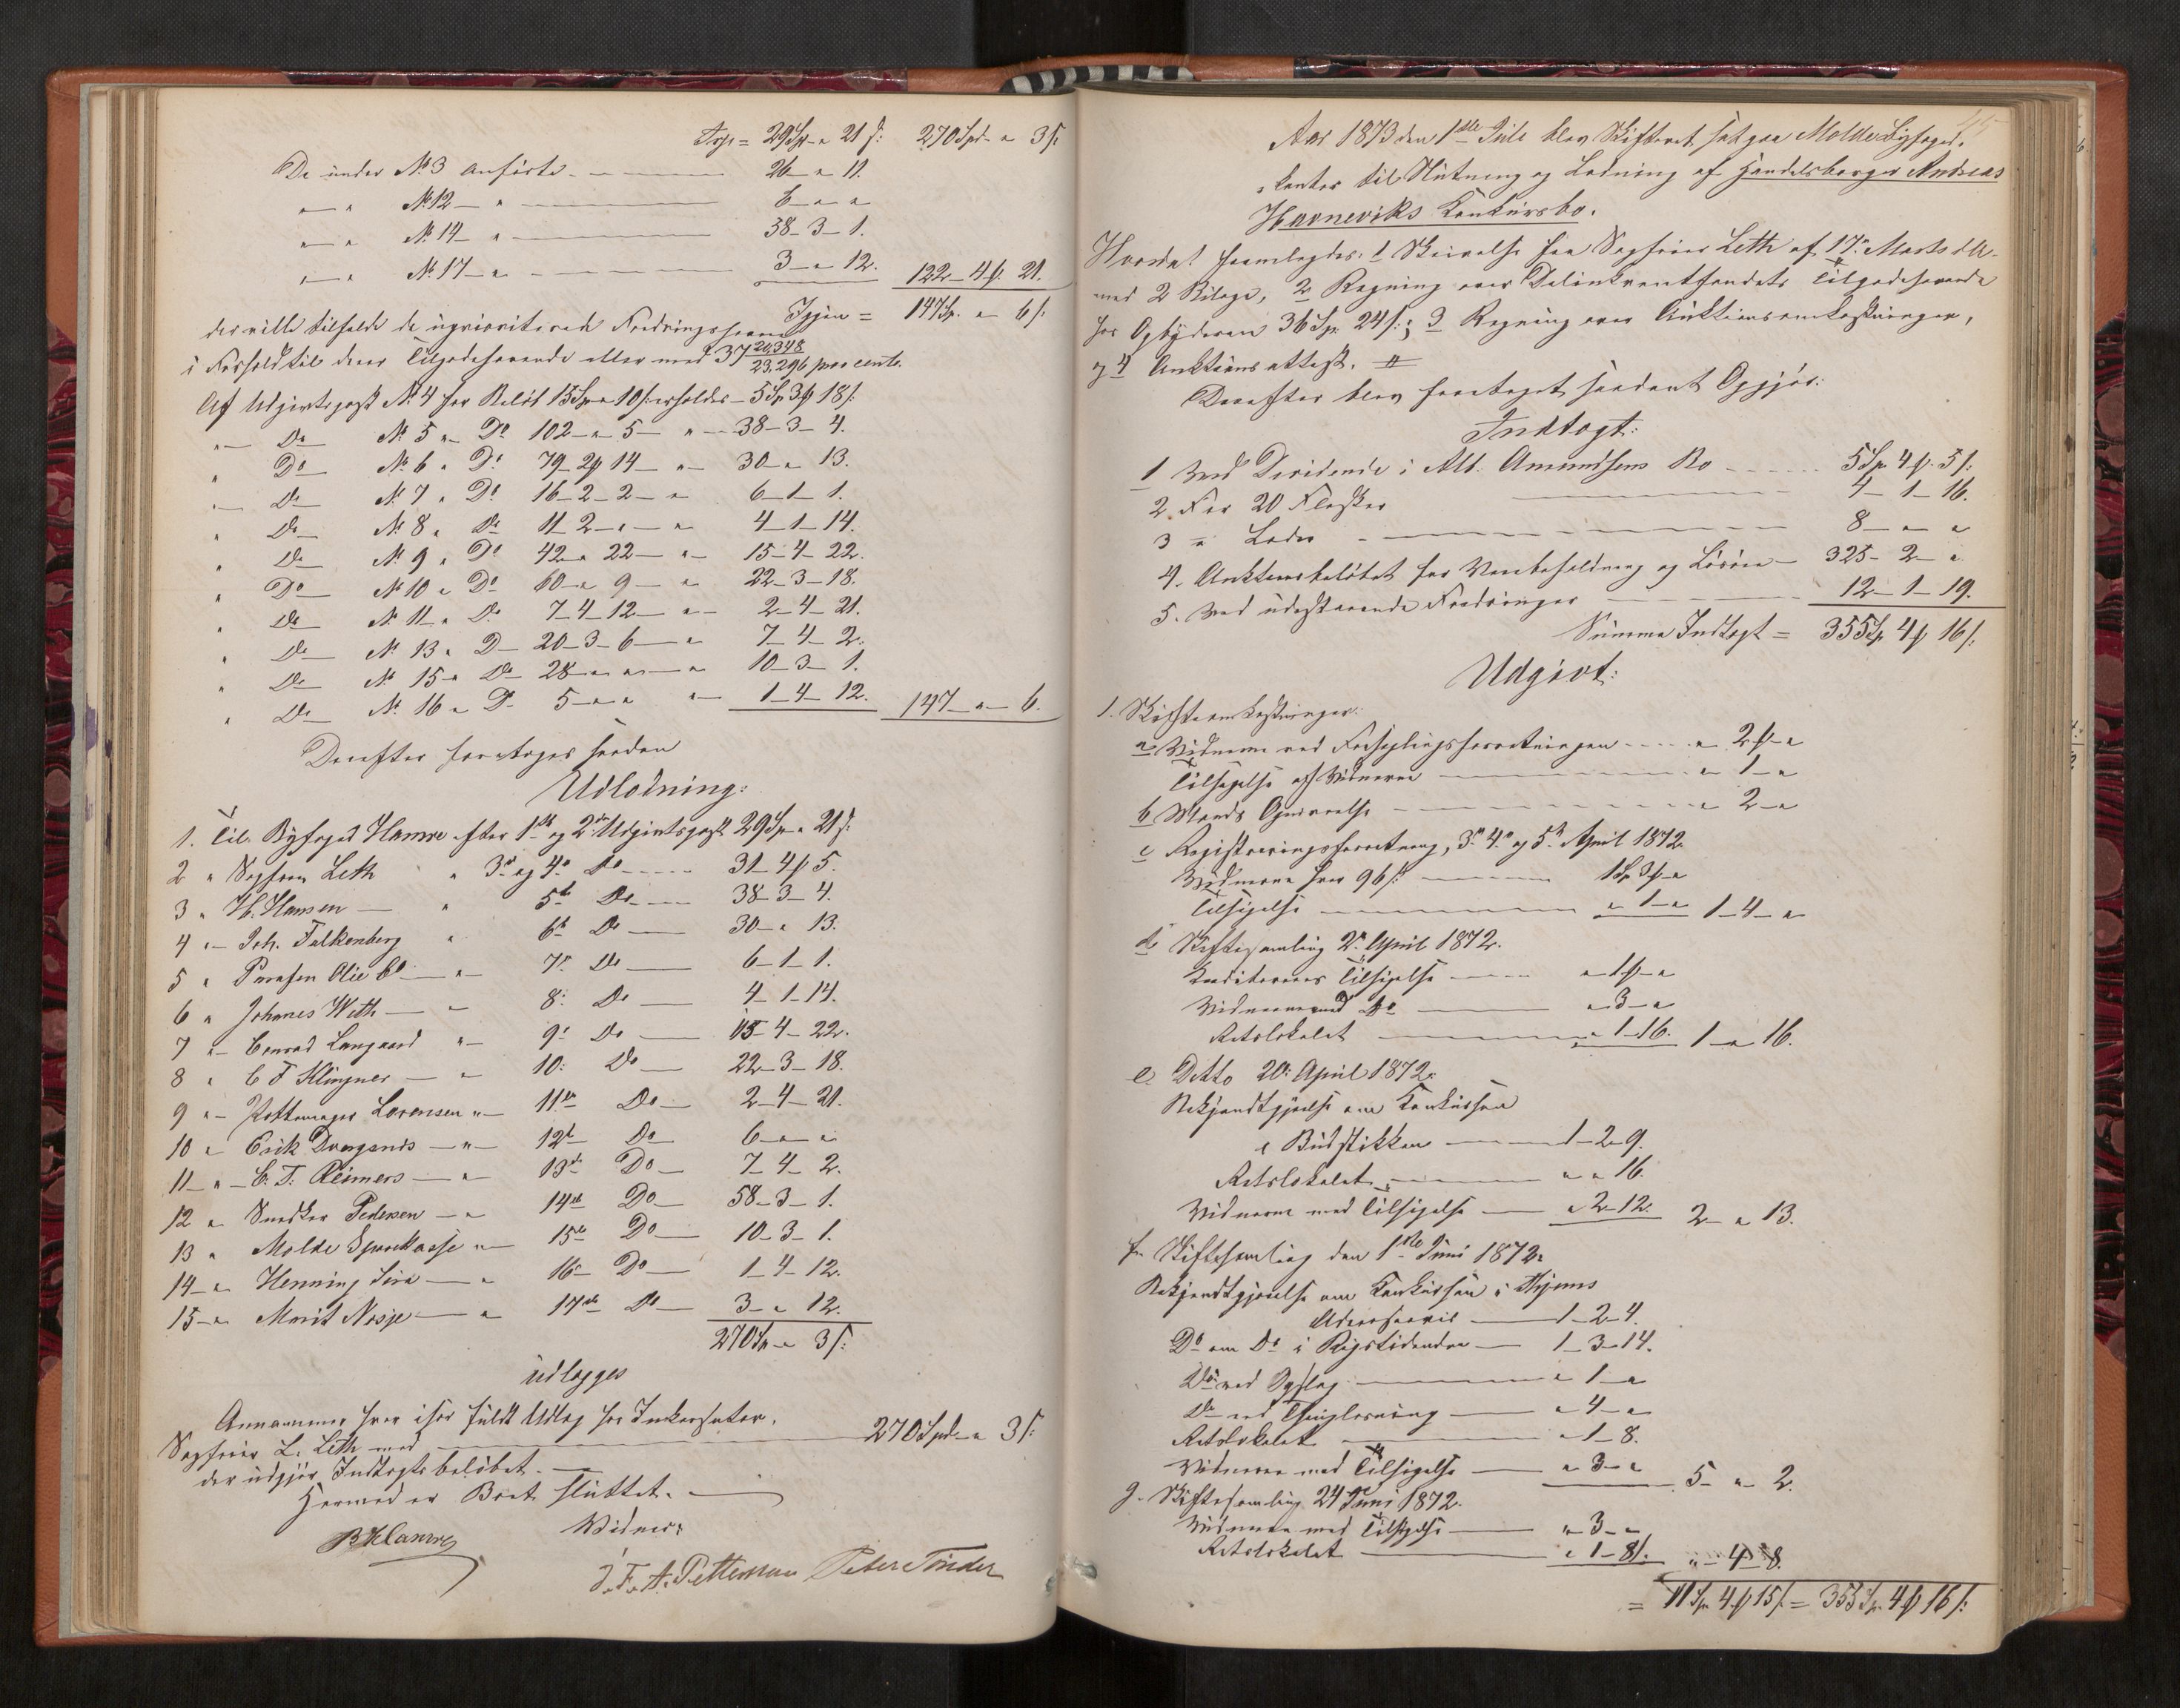 Trp = 29 Sp „ 21 ß: 270 Spd „ 3 ß
De under No 3 anførte 26 „ 11.
„ „ No 12 „ 6 „ „
„ „ No 14 „ 38 – 3 – 1.
„ „ No 17 „ 3 „ 12. 122 – 4 ß 21.
Igjen = 147 Sp. „ 6 ß:
der ville tilfalde de uprioriterede Fordringshavere
i Forhold til deres Tilgodehavende eller med 37 20,348/23,296 procent.
Af Udgivtspost No 4 for Beløb 15 Sp „ 10 ß erholdes – 5 Sp 3 ß 18 ß:
„ Do No 5 „ Do 102 „ 5 „ 38 – 3 – 4.
„ Do No 6 „ Do 79 – 2 ß 14 „ 30 „ 13.
„ Do No 7 „ Do 16 – 2 – 2 „ 6 – 1 – 1.
„ Do No 8 „ Do 11 – 2 „ „ 4 – 1 – 14.
„ Do No 9 „ Do 42 „ 22 „ 15 – 4 – 22.
„ Do No 10 „ Do 60 „ 9 „ 22 – 3 – 18.
„ Do No 11 „ Do 7 – 4 – 12 „ 2 – 4 – 21.
„ Do No 13 „ Do 20 – 3 – 6 „ 7 – 4 – 2.
„ Do No 15 „ Do 28 „ „ „ 10 – 3 – 1.
„ Do No 16 „ Do 5 „ „ „ 1 – 4 – 12. 147 „ 6.
Derefter foretoges saadan
Udlodning:
1. Til Byfoged Hamre efter 1ste og 2den Udgivtspost 29 Sp „ 21 ß:
2 „ Sagfører Leth „ 3die og 4de Do 31 – 4 ß 5.
3 „ H. Hansen „ 5te Do 38 – 3 – 4.
4 „ Joh. Falkenberg „ 6te Do 30 „ 13.
5 „ Olie Co „ 7de Do 6 – 1 – 1.
6 „ Johanes Weth „ 8: Do 4 – 1 – 14.
7 „ Conrad Langaard „ 9: Do 15 – 4 – 22.
8 „ C F Klingner „ 10: Do 22 – 3 – 18.
9 „ Pottemager Lorensen „ 11te Do 2 – 4 – 21.
10 „ Erik Drageniis „ 12te Do 6 „ „
11 „ C. T. Reimers „ 13de Do 7 – 4 – 2.
12 „ Snedker Pedersen „ 14de Do 58 – 3 – 1.
13 „ Molde Sparekasse „ 15de Do 10 – 3 – 1.
14 „ Henning „ 16de Do 1 – 4 – 12.
15 „ Marit Nøsje „ 17de Do 3 „ 12.
270 Sp „ 3 ß:
Udlægges
Annammer hver især fuldt Udlæg hos Inkassator,
Sagfører L. Leth med 270 Spd „ 3 ß:
der udgjør Indtægtsbeløbet.
Hermed er Boet sluttet.
BHamre Vidner:
J. F. A. Pettersen Peter Tønder
Aar 1873 den 1ste Juli blev Skifteret sat paa Molde Byfoged-
kontor til Slutning og Lodning af Handelsborger Andreas
Havneviks Konkursbo.
Hvorda! fremlagdes: 1 Skrivelse fra Sagfører Leth af 17de Marts d A.
med 2 Bilage, 2 Regning over Delinkventfondets Tilgodehavende
hos Opbyderen 36 Sp 24 ß:; 3 Regning over Auktionsomkostninger,
og 4 Auktionsattest. #
Derefter blev foretaget saadant Opgjør:
Indtægt:
1 Ved Dividende i Alb. Amundsens Bo 5 Sp 4 ß. 5 ß:
2 For 20 Flasker 4 – 1 – 16.
3 „ Lodes 8 „ „
4. Auktionsbeløbet for Varebeholdning og Løsøre 325 – 2 „
5. Ved udestaaende Fordringer 12 – 1 – 19.
Summa Indtægt = 355 Sp 4 ß 16 ß:
Udgivt:
1. Skifteomkostninger:
a Vidnerne ved Forseglingsforretningen „ 2 ß „
Tilsigelse af Vidnerne „ 1 „
b Mands Opnævnelse „ 2 „
c Registreringsforretning, 3de 4de og 5te April 1872
Vidnerne hver 96 ß: 1 Sp 3 ß „
Tilsigelse „ 1 „ 1 – 4 „
d Skiftesamling 2den April 1872.
Kreditorernes Tilsigelse „ 1 ß „
Vidnerne med Do „ 3 „
Retslokalet „ 1 – 16. 1 „ 16.
e. Ditto 20de April 1872.
Bekjendtgjørelse om Konkursen
i Budstikken 1 – 2 – 9.
Retslokalet „ „ 16.
Vidnerne med Tilsigelse „ 2 – 12. 2 „ 13.
f. Skiftesamling den 1ste Juni 1872.
Bekjendtgjørelse om Konkursen i Thjems
Adresseavis 1 – 2 – 4.
Do om Do i Rigstidenden 1 – 3 – 14.
Do ved Opslag „ 1 „
Do ved Thinglæsning „ 4 „
Retslokalet „ 1 – 8.
Vidnerne med Tilsigelse „ 3 „ 5 „ 2.
g. Skiftesamling 24de Juni 1872.
Vidnerne med Tilsigelse „ 3 „
Retslokalet „ 1 – 8 ß. „ 4 – 8.
= 11 Sp 4 ß 15 ß = 355 Sp 4 ß 16 ß: